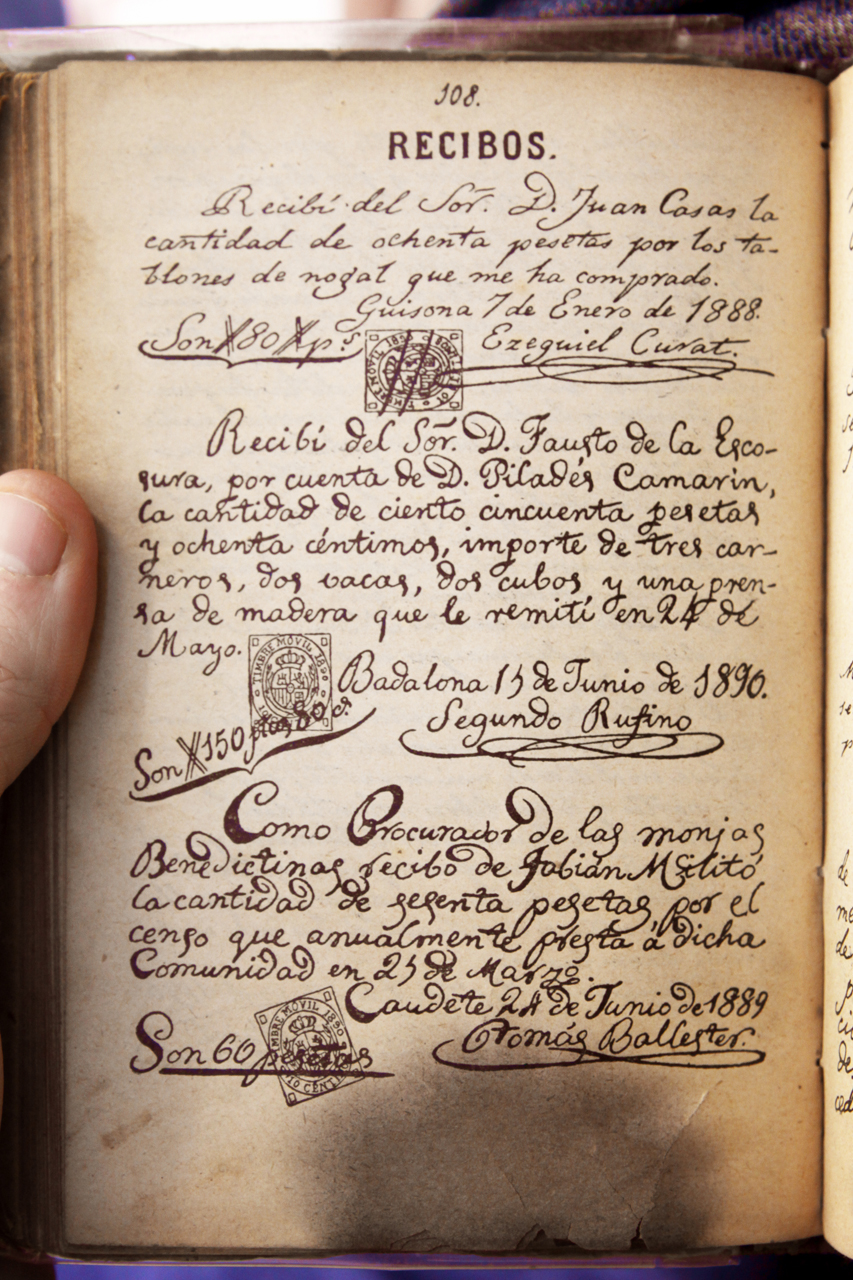 108.
RECIBOS.
Recibí del Sor. D. Juan Casas la
cantidad de ochenta pesetas por los ta-
blones de nogal que me ha comprado.
Guisona 7 de Enero de 1888.
Son 80 ps
Ezequiel Curat.
Recibí del Sor. D. Fausto de la Esco-
sura, por cuenta de D. Piladés Camarin,
la cantidad de ciento cincuenta pesetas
y ochenta céntimos, importe de tres car-
neros, dos vacas, dos cubos y una pren-
sa de madera que le remití en 24 de
Mayo.
TIMBRE MOVIL 1890
Badalona 15 de Junio de 1890.
Son 150 ptas 80 cs
Segundo Rufino
Como Procurador de las monjas
Benedictinas recibo de Fabián
la cantidad de sesenta pesetas por el
censo que anualmente presta á dicha
Comunidad en 25 de Marzo.
Caudete 24 de Junio de 1889
Son 60 pesetas
MOVIL 1890
10 CENT
Tomás Ballester.